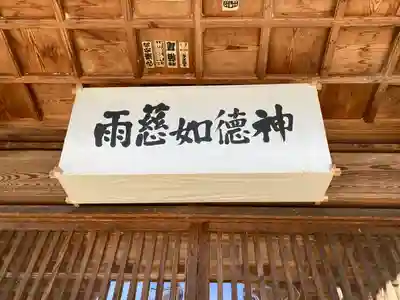 神徳如慈雨